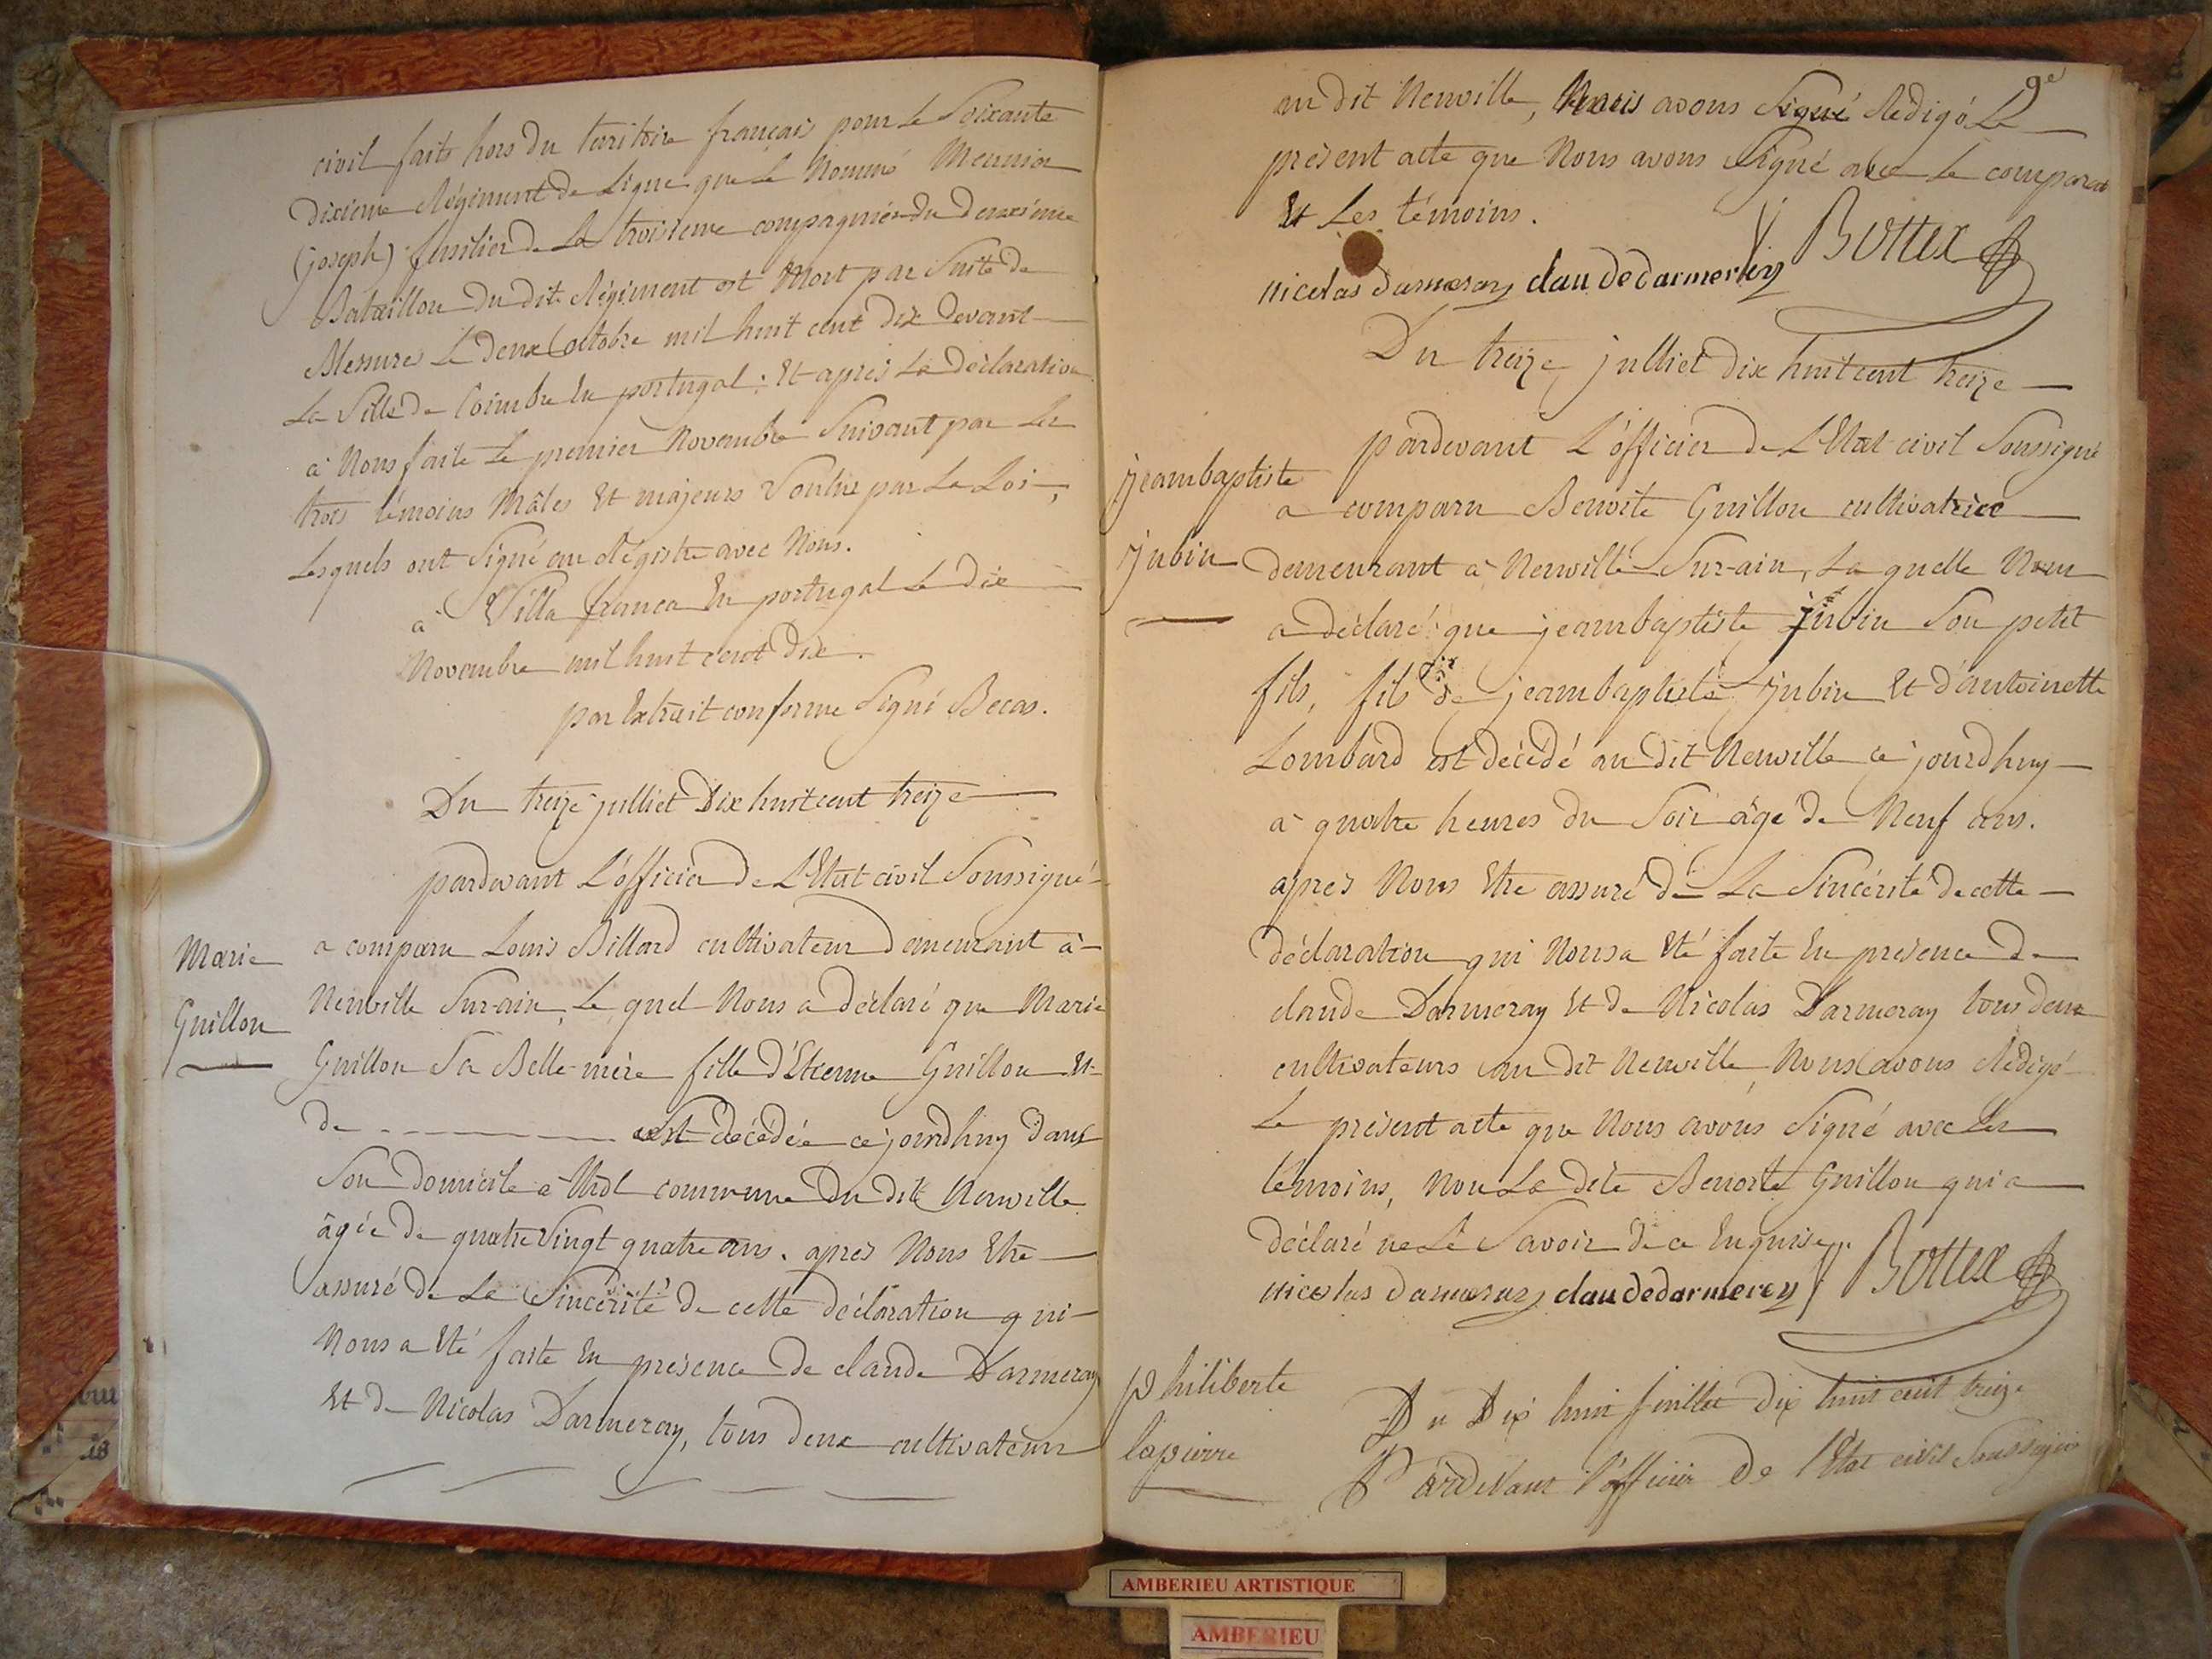 civil faits hors du territoire français pour le Soixante
dixieme Régiment de Ligne que le Nommé Meunier
(joseph) fusilier de La troisieme compagnie du deuxieme
Bataillon du dit Régiment est Mort par Suite de
Blessures Le deux octobre mil huit cent dix devant
La Ville de Coimbre En portugal; Et après La déclaration
à Nous faite Le premier Novembre Suivant par Les
trois témoins Mâles Et majeurs Voulus par La Loi,
Lesquels ont Signé au Régistre avec Nous.
à Villa franca En portugal Le dix
Novembre mil huit cent dix.
par Extrait conforme Signé Becas.
Du treize julliet Dix huit cent treize
pardevant L'officier de L'Etat civil Soussigné
Marie
Guillon
a comparu Louis Billard cultivateur demeurant à
Neuville Sur-ain, Le quel Nous a déclaré que Marie
Guillon Sa Belle-mère fille d'Etienne Guillon Et
de est décédée ce jourdhuy dans
Son domicile à commune Du dit Neuville
âgée de quatre Vingt quatre ans. après Nous Etre
assuré de La Sincérité de cette déclaration qui
Nous a Eté faite En présence de claude Darmeray
Et de Nicolas Darmeray, tous deux cultivateurs
9e
au dit Neuville, Nous avons Signé Rédigé Le
présent acte que Nous avons Signé avec Le comparant
Et Les témoins.
nicolas darmeray claudedarmerey Bottex
Du treize julliet dix huit cent treize
jeambaptiste
jubin
pardevant L'officier de L'Etat civil Soussigné
a comparu Benoite Guillon cultivatrice
demeurant à Neuville Sur-ain, La quelle Nous
a déclaré que jeambaptiste jubin Son petit
fils, fils de jeambaptiste jubin Et d'antoinette
Lombard est décédé au dit Neuville ce jourdhuy
à quatre heures du Soir âgé de Neuf ans.
après Nous Etre assuré de La Sincérité de cette
déclaration qui Nous a Eté faite En présence de
claude Darmeray Et de Nicolas Darmeray tous deux
cultivateurs au dit Neuville, Nous avons Rédigé
Le présent acte que Nous avons Signé avec Les
témoins, Non La dite Benoite Guillon qui a
déclaré ne Le Savoir de ce Enquise.
nicolas darmeray claudedarmerey Bottex
philiberte
lapierre
Du Dix huit juillet dix huit cent treize
Pardevant l'officier de l'Etat civil Soussigné
AMBERIEU ARTISTIQUE
AMBERIEU